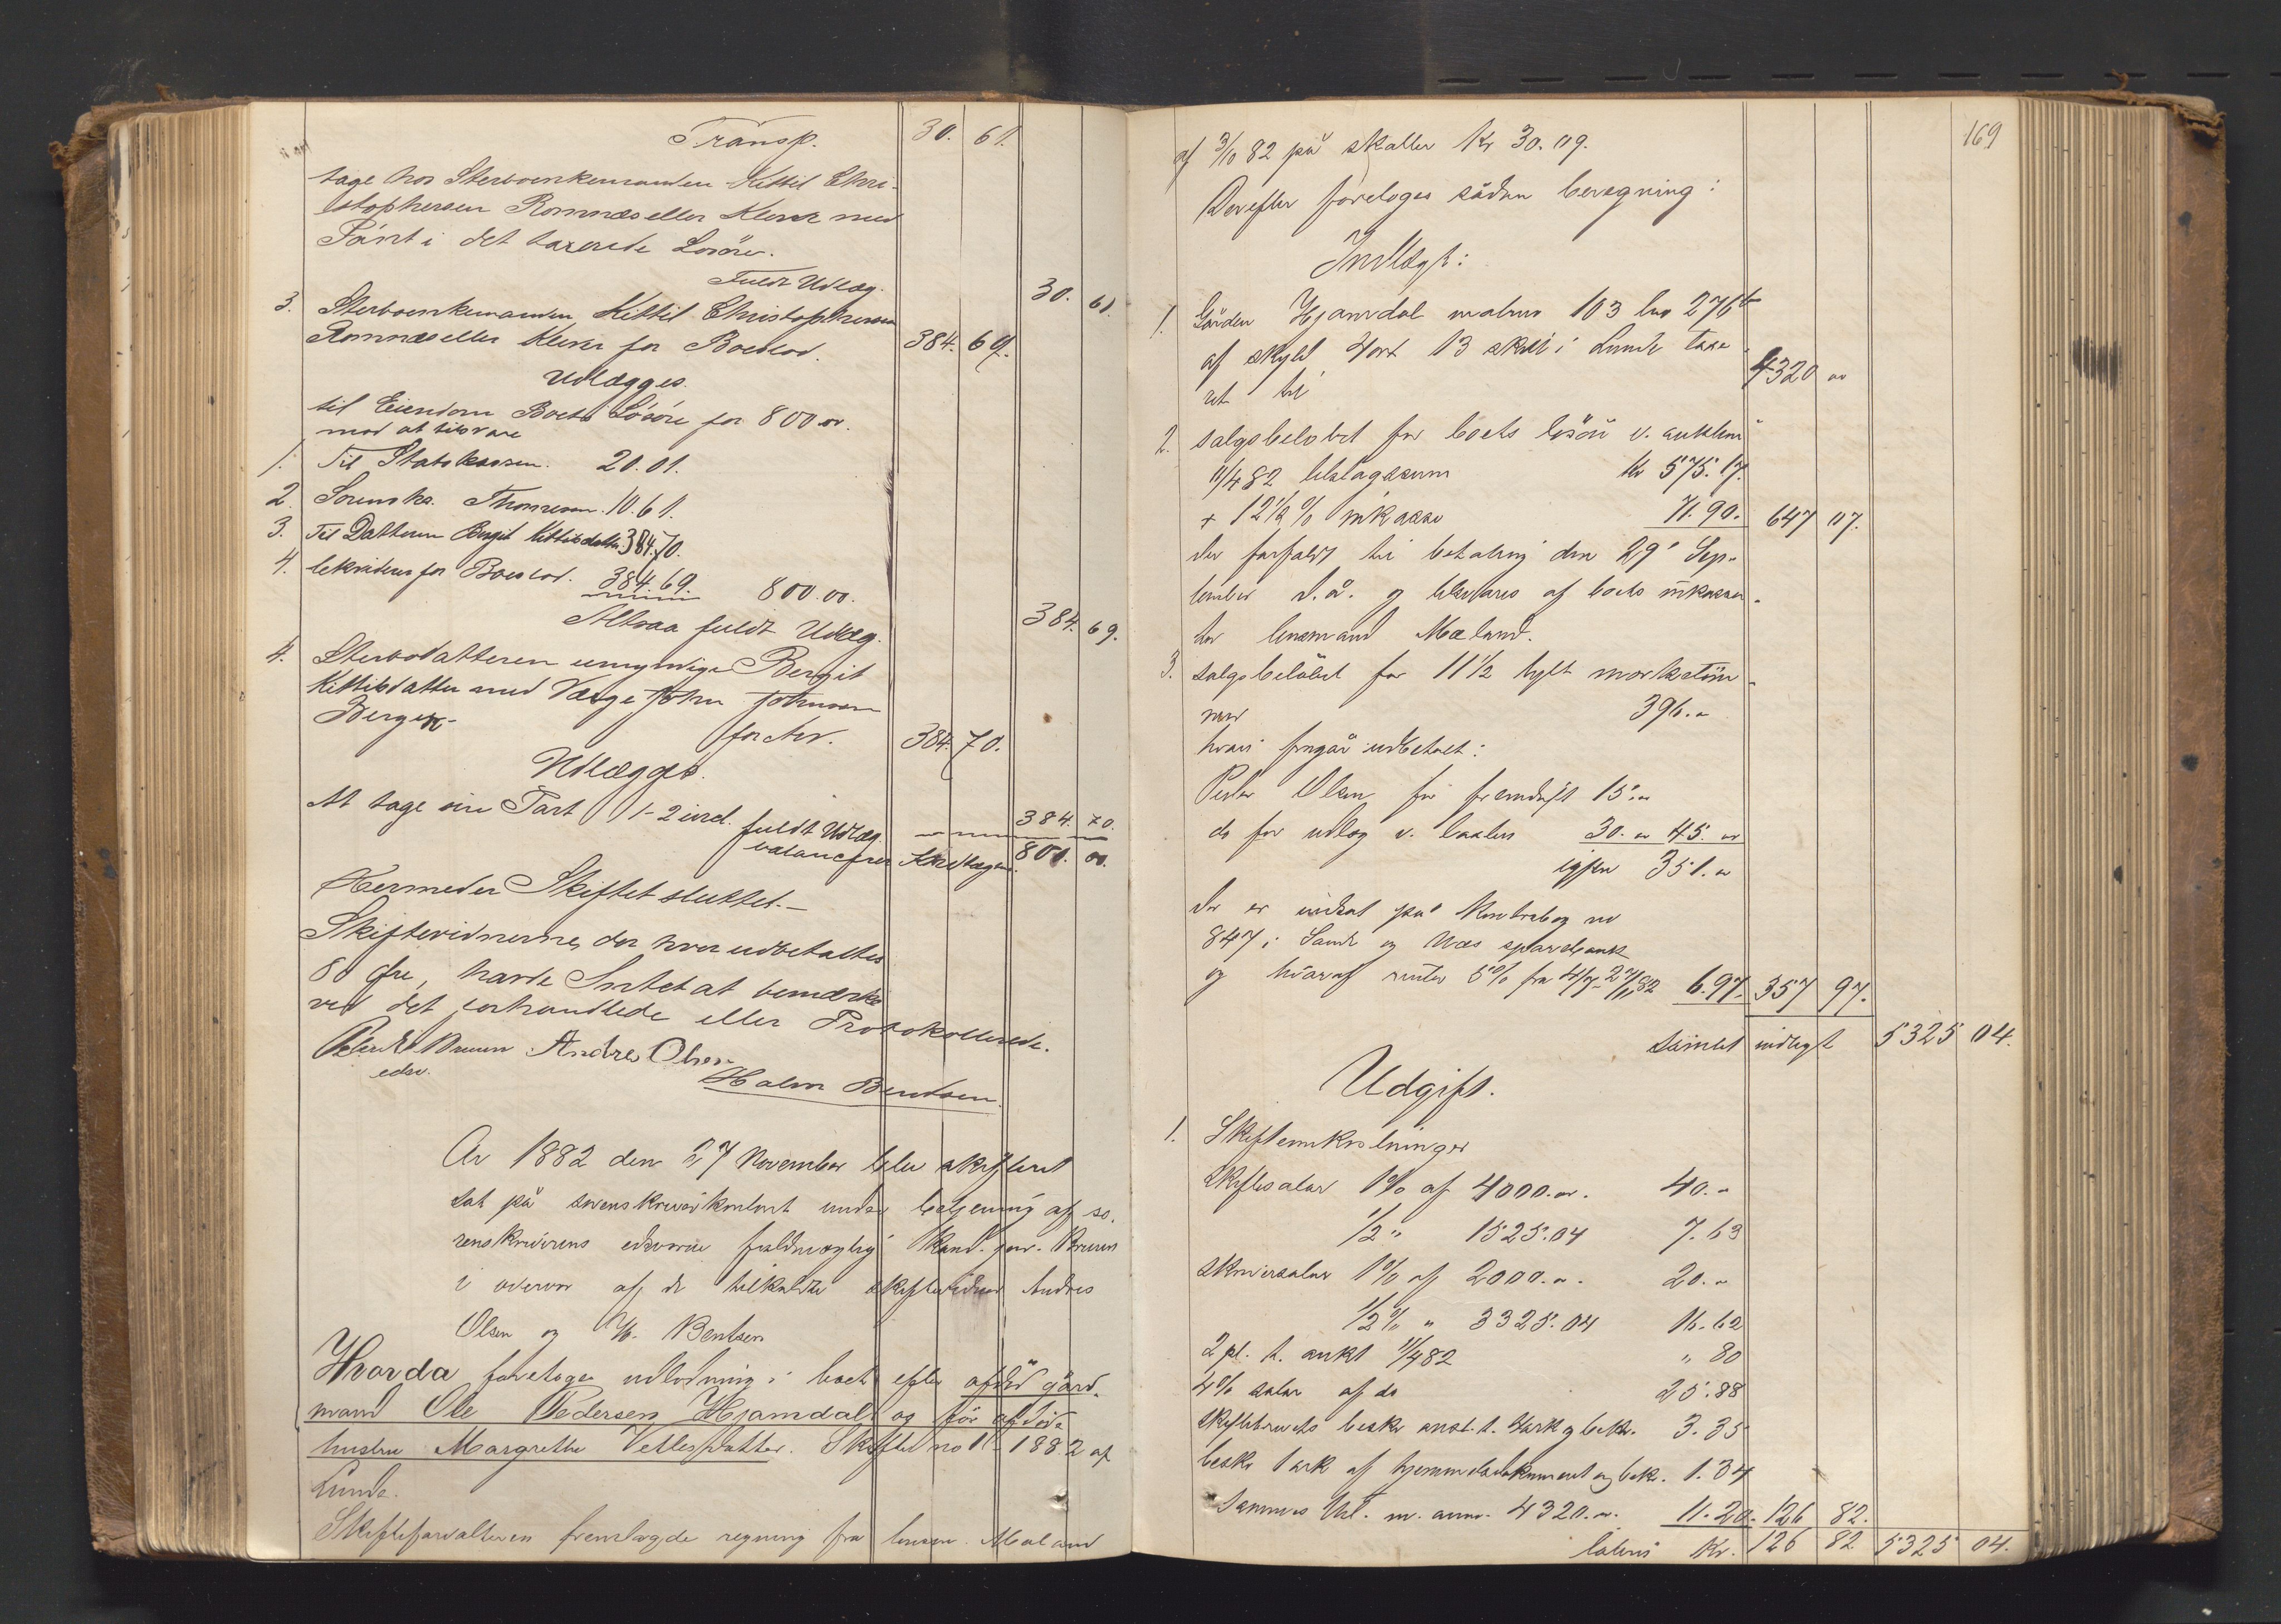 Transp. 30. 61.
tage hos Sterboenkemanden Kittil Chri-
stophersen Romnæs eller Kleva med
Pant i det taxerede Løsøre.
Fuldt Udlæg. 30. 61
3. Sterboenkemanden Kittil Christophersen
Romnæs eller Kleva for Boeslod. 384. 69.
Udlægges.
til Eiendom Boets Løsøre for 800 00.
mod at tilsvare
1. Til Statskassen. 20.01.
2. Sorenskr. Thomesen. 10.61.
3. Til Datteren Bergit Kittilsdatter 384.70.
4. bekvidere for Boeslod. 384.69. 800.00.
Altsaa fuldt Udlæg. 384. 69.
4. Sterbodatteren umyndige Bergit
Kittilsdatter med Værge John Johnsen
Berge
for Arv. 384. 70.
Udlægges.
At tage sin Part 1-2 ind. fuldt Udlæg. 384. 70.
balancerer Indtægten. 800. 00.
Hermed er Skiftet sluttet.-
Skiftevidnerne, der hver udbetaltes
80 Øre, havde Intet at bemærke
ved det forhandlede eller Protokollerede.
Bruun Andres Olsen
edsv.
Halvor Bentsen.
År 1882 den 27 November blev skifteret
sat på sorenskriverkontoret under betjening af so-
renskriverens edsvorne fuldmægtig Kand. jur. Bruun
i overvær af de tilkaldte skiftevidner Andres
Olsen og H. Bentsen
Hvorda foretoges udlodning i boet efter afdød gård-
mand Ole Pedersen Hjamdal og før afdøde
hustru Margrethe Vetlesdatter. Skifte no 1 - 1882 af
Lunde.
Skifteforvalteren fremlagde regning fra lensm. Mæland
169
af 3/10 82 på skatter Kr 30.09.
Derefter foretoges sådan beregning:
Indtægt:
1. Gården Hjamdal matrno 103 lno 276 b
af skyld 4 ort 13 skill i Lunde taxe-
ret til 4320 00
2. salgsbeløbet for boets løsøre v. auktion
11/4 82 tilslagssum Kr 575.17.
+ 12 1/2 % inkasso 71.90. 647 07.
der forfaldt til betaling den 29' Sep-
tember d.å. og tilsvares af boets inkassa-
tor lensmand Mæland.
3. salgsbeløbet for 11 1/2 tylt marketøm-
mer 396.-
hvori fragår udbetalt:
Peder Olsen for fremdrift 15.00
do for udlæg v. 30.00 45.00
igjen 351.00
der er indsat på Kontrabog no
847 i Sande og Næs sparebank
og hvoraf renter 5% fra 4/7-27/11 82 6.97. 357 97.
samlet indtægt 5325 04.
Udgift.
1. Skifteomkostninger
Skiftesalær 1% af 4000.00. 40.-
1/2 " 1525.04 7.63
Skriversalær 1% af 2000.-. 20.-
1/2% " 3325.04 16.62
2 pl. t. aukt 11/4 82 " 80
4% salær af do 25.88
skiftebrevets beskr anst. t. 4 ark og bekr. 3.35
beskr 1 ark af hjemmelsdokument og bekr. 1.34
sammes thl. m. anm. 4320.-. 11.20. 126 82.
latus Kr. 126 82 5325 04.